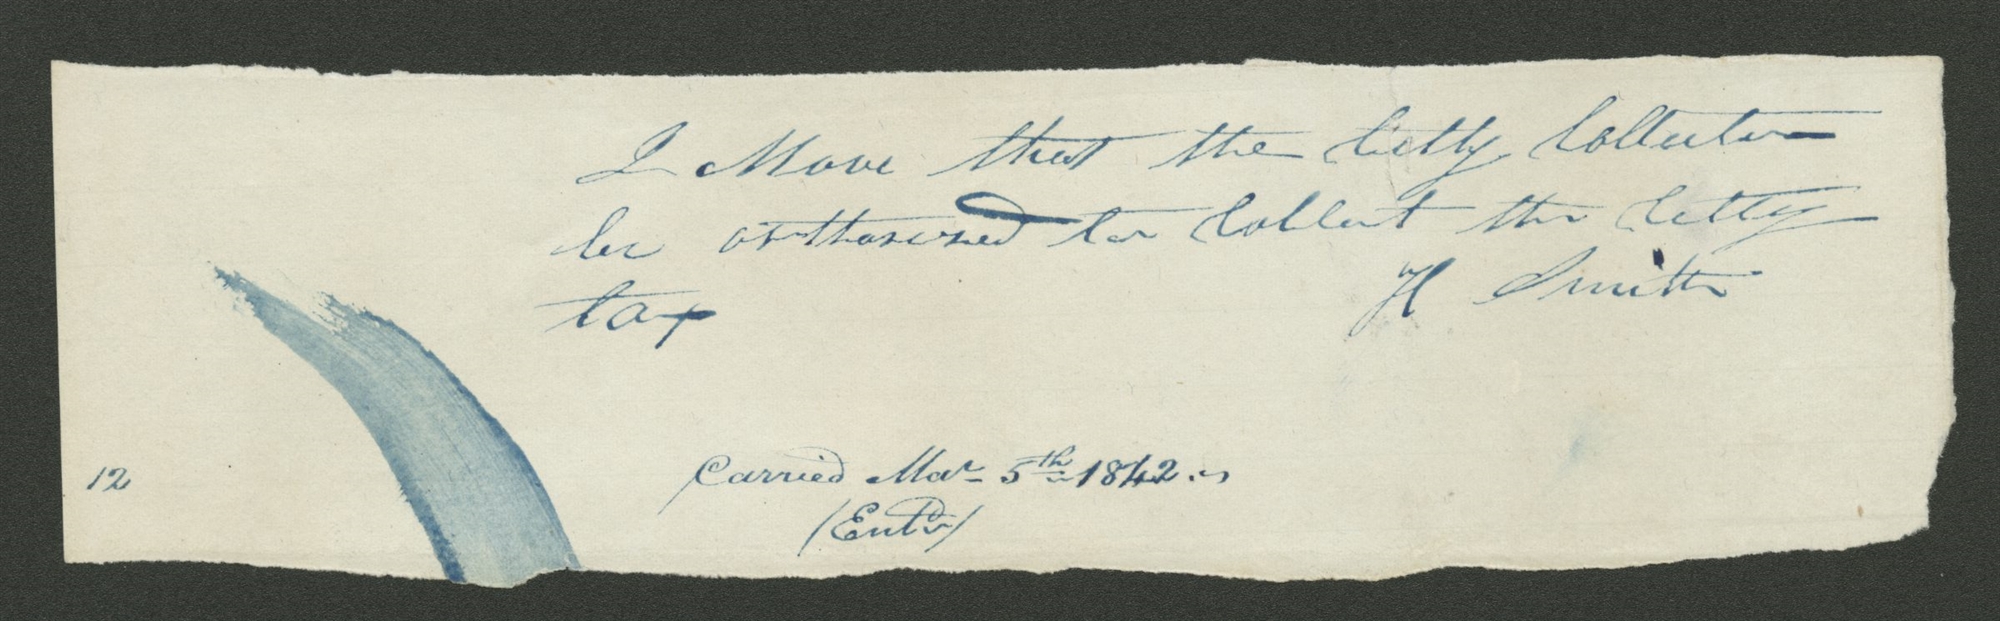 I Move that the Citty Collector
be orthorised to Collect the Citty
tax
H Smith
Carried Mar 5th 1842.
12
(Entd)